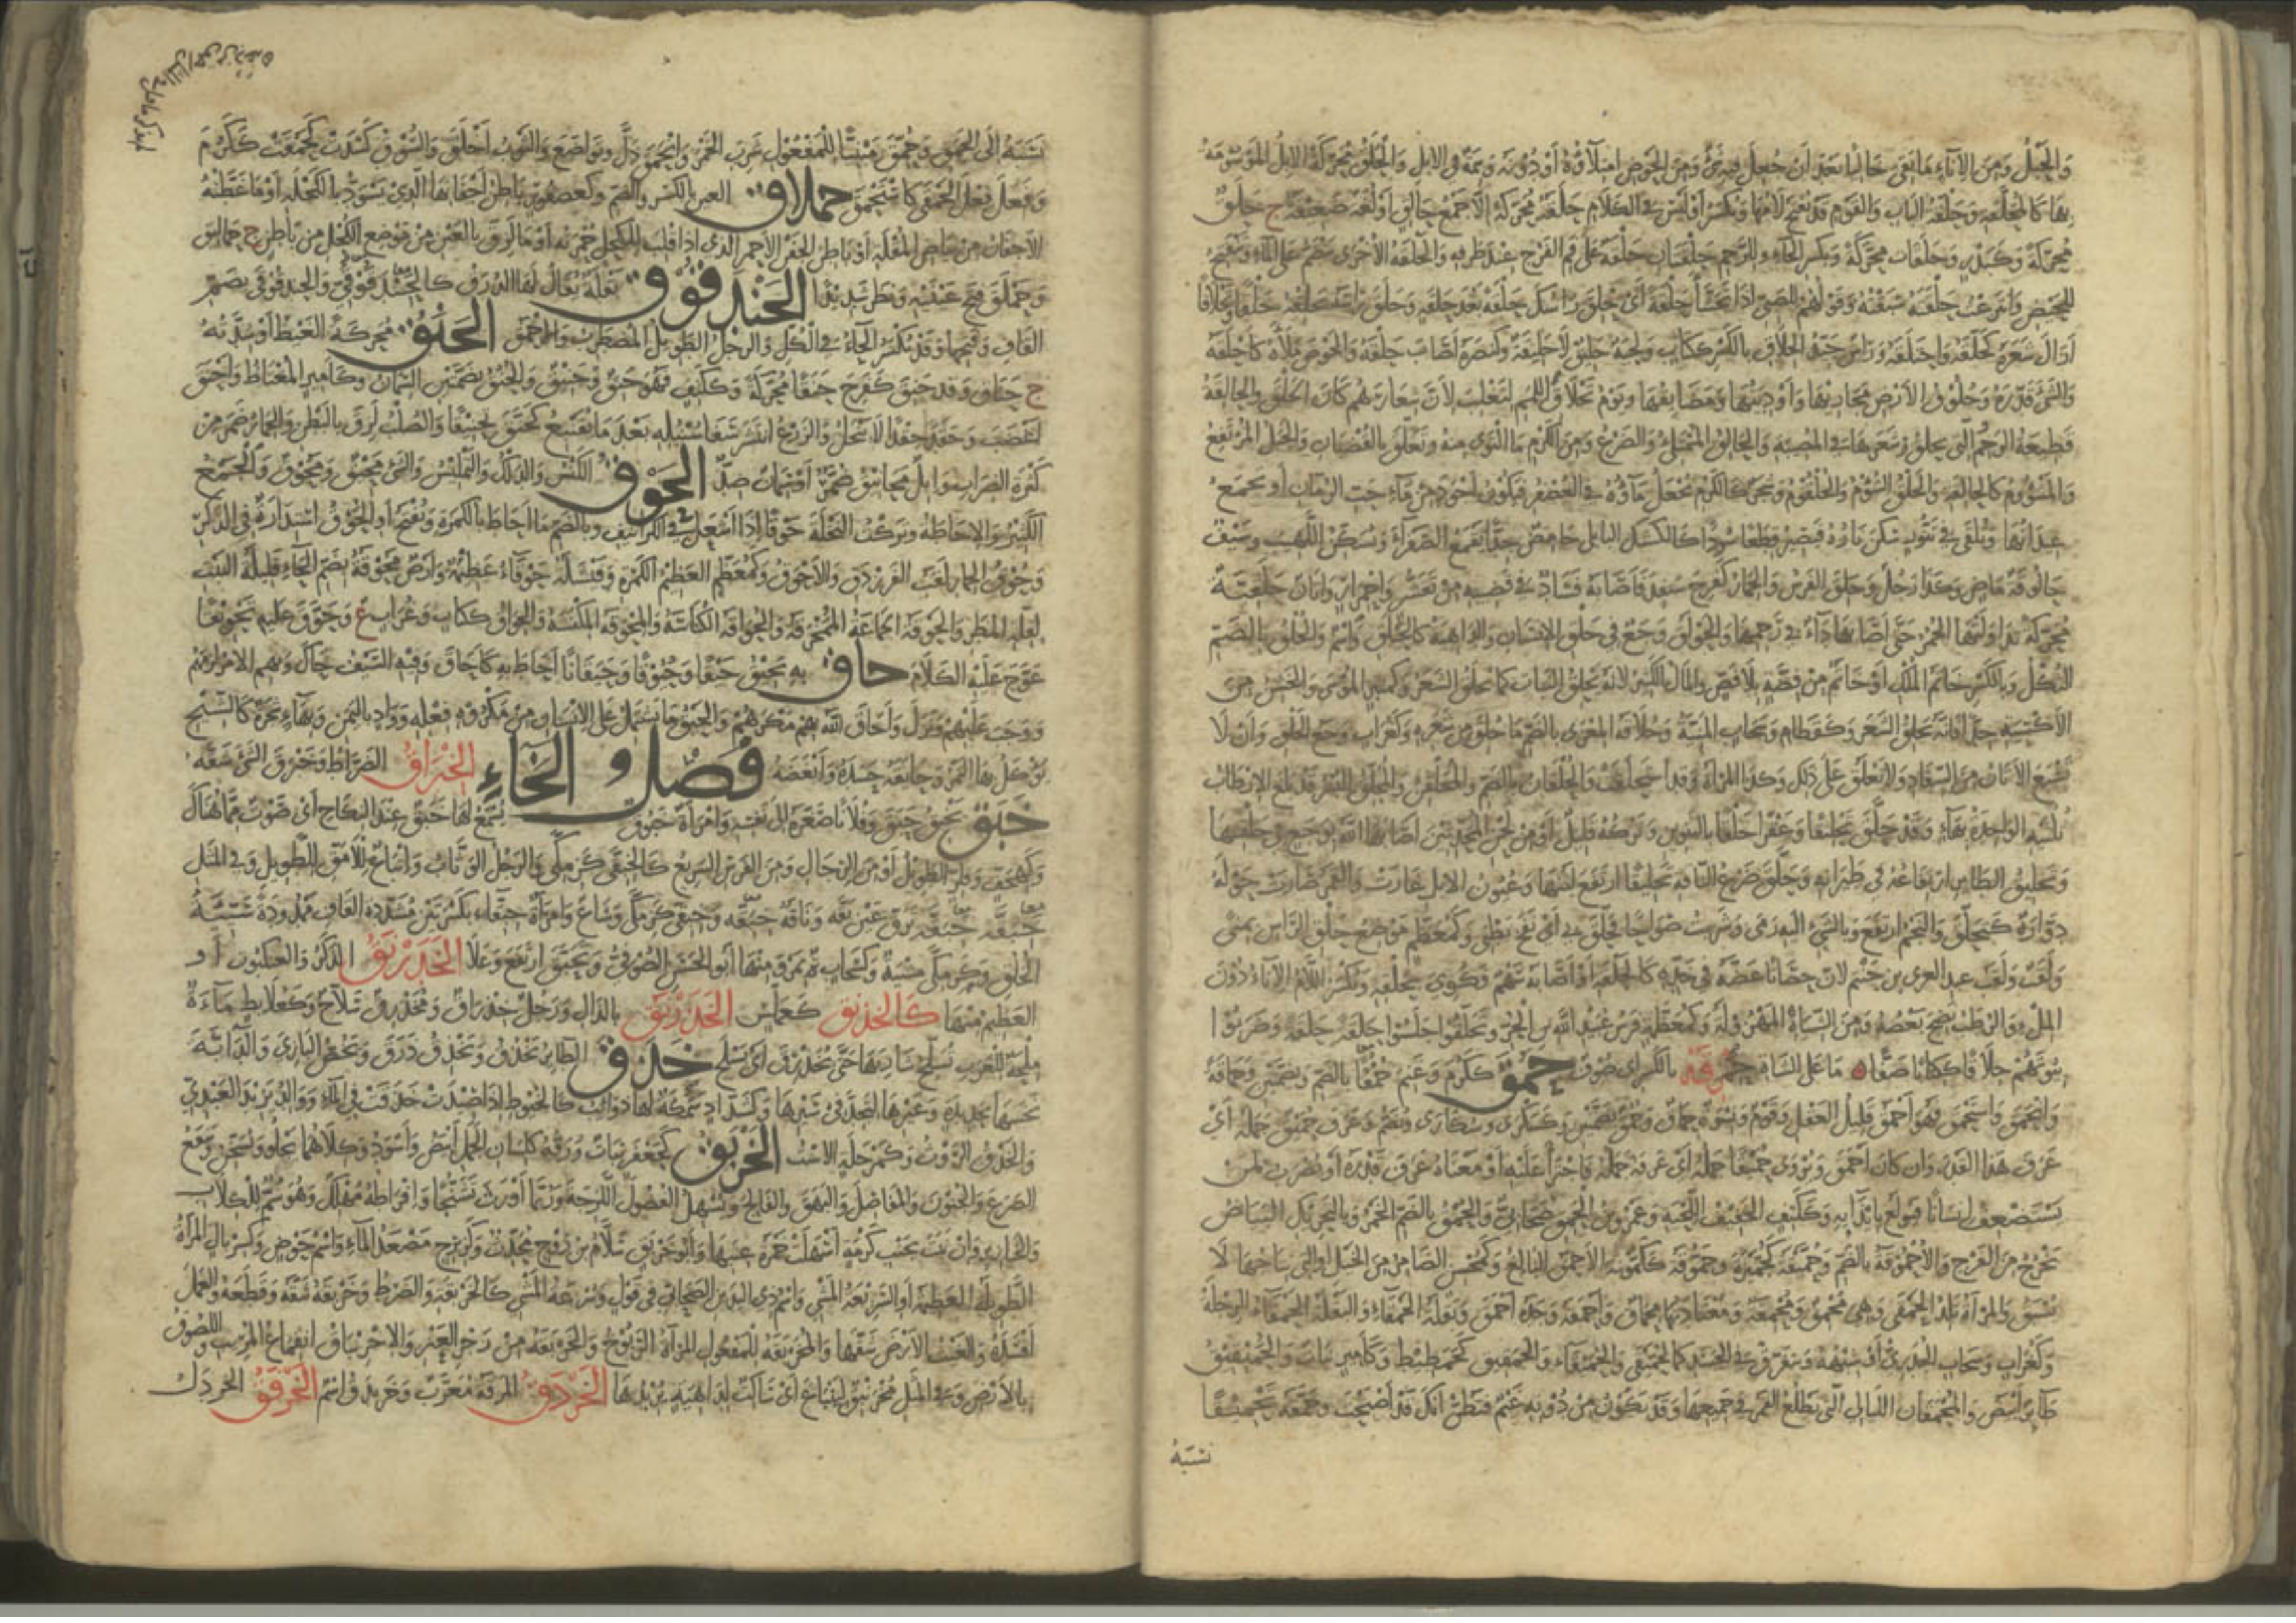 والحبل ومن الإناء ما بقي خاليا بعد أن جعل فيه شيء ومن الحوض امتلاؤه أو دونه وسمة في الإبل والحلق محركة الإبل الموسومة
بها كالمحلقة وحلقة الباب والقوم وقد تفتح لامهما وتكسر أو ليس في الكلام حلقة محركة إلا جمع حالق أو لغة ضعيفة ج حلق
محركة وكبدر وحلقات محركة وبكسر الحاء وللرحم حلقتان حلقة على فم الفرج عند طرفه والحلقة الأخرى تنضم على الماء وتنفتح
للحيض وانتزعت حلقته سبقته وقولهم للصبي إذا تجشأ حلقة أي حلق رأسك حلقة بعد حلقة وحلق رأسه يحلقه حلقا وتحلاقا
أزال شعره كحلقه واحتلقه ورأس جيد الحلاق بالكسر ككتاب ولحية حليق لا حليقة وكنصره أصاب حلقه والحوض ملأه كأحلقه
والشيء قدره وحلوق الأرض مجاريها وأوديتها ومضايقها ويوم تحلاق اللمم لتغلب لأن شعارهم كان الحلق والحالقة
قطيعة الرحم التي تحلق شعرها في المصيبة والحالق الممتلئ والضرع ومن الكرم ما التوى منه وتعلق بالقضبان والجبل المرتفع
والمشؤوم كالحالقة والحلق الشؤم والحلقوم وشجر كالكرم يجعل ماؤه في العصفر فيكون أجود من ماء حب الرمان أو تجمع
عيدانها وتلقى في تنور سكن ناره فتصير قطعا سودا كالكشك البابلي حامض جدا يقمع الصفراء ويسكن اللهيب وسيف
حالوقة ماض وكذا رجل وحلق الفرس والحمار كفرح سفد فأصابه فساد في قضيبه من تقشر واحمرار وأتان حلقية
محركة تداولتها الحمر حتى أصابها داء في رحمها والحولق وجع في حلق الإنسان والداهية كالحيلق واسم والحلق بالضم
الثكل وبالكسر خاتم الملك أو خاتم من فضة بلا فص والمال الكثير لأنه يحلق النبات كما يحلق الشعر وكمنبر الموسى والخشن من
الأكسية جدا كأنه يحلق الشعر وكقطام وسحاب المنية وحلاقة المعزى بالضم ما حلق من شعره وكغراب وجع الحلق وأن لا
تشبع الأتان من السفاد ولا تعلق على ذلك وكذا المرأة وقد استحلقت والحلقان بالضم والمحلقن والمحلق البسر قد بلغ الإرطاب
ثلثيه الواحدة بهاء وقد حلق تحليقا وعقرا حلقا بالتنوين وتركه قليل أو من لحن المحدثين أصابها الله بوجع في حلقها
وتحليق الطائر ارتفاعه في طيرانه وحلق ضرع الناقة تحليقا ارتفع لبنها وعيون الإبل غارت والقمر صارت حوله
دوارة كتحلق والنجم ارتفع وبالشيء إليه رمى وشربت صواحا فحلق بي أي نفخ بطني وكمعظم موضع حلق الرأس بمنى
ولقب ولقب عبد العزى بن حنتم لأن حصانا عضه في خده كالحلقة أو أصابه سهم فكوي بحلقة وبكسر اللام الإناء دون
الملء والرطب نضج بعضه ومن الشياه المهزولة وكمعظمة فرس عبيد الله بن الحر وتحلقوا جلسوا حلقة حلقة وضربوا
بيوتهم حلاقا ككتاب صفا ما على الشاة حمرقة بالكسر أي صوف حمق ككرم وغنم حمقا بالضم وبضمتين وحماقة
وانحمق واستحمق فهو أحمق قليل العقل وقوم ونسوة حماق وحمق بضمتين وكسكرى وسكارى ويضم وعرف حميق جمله أي
عرف هذا القدر وإن كان أحمق ويروى حميقا جمله أي عرفه جمله فاجترأ عليه أو معناه عرف قدره أو يضرب لمن
يستضعف إنسانا فيولع بإيذائه وككتف الخفيف اللحية وعمرو بن الحمق صحابي والحمق بالضم الخمر وبالتحريك البياض
يخرج من الفرج والأحموقة بالضم وحميقة كجهينة وحموقة كأمونة الأحمق البالغ وكمحسن الضامر من الخيل أو التي نتاجها لا
يسبق والمرأة تلد الحمقى وهي محمق ومحمقة ومعتادتها محماق وأحمقه وجده أحمق وبقلة الحمقاء والبقلة الحمقاء الرجلة
وكغراب وسحاب الجدري أو شبهه يتفرق في الجسد كالحميقى والحميقاء والحمقيق كحمطيط وكأمير نبات والحميميق
طائر أبيض والمحمقات الليالي التي يطلع القمر في جميعها وقد يكون من دونه غيم فتظن أنك قد أصبحت وحمقه تحميقا
نسبه
نسبه إلى الحمق وحمق مبنيا للمفعول شرب الخمر وانحمق ذل وتواضع والثوب أخلق والسوق كسدت كحمقت ككرم
وفعل فعل الحمقى كاستحمق حملاق العين بالكسر والضم وكعصفور باطن أجفانها الذي يسود بالكحلة أو ما غطته
الأجفان من بياض المقلة أو باطن الجفن الأحمر الذي إذا قلب للكحل بدت حمرته أو ما لزق بالعين من موضع الكحل من باطن ج حماليق
وحملق فتح عينيه ونظر شديدا الحندقوق بقلة يقال لها الذرق كالحندقوقى والحندقوقى بضم
القاف وفتحها وقد تكسر الحاء في الكل والرجل الطويل المضطرب والأحمق الحنق محركة الغيظ أو شدته
ج حناق وقد حنق كفرح حنقا محركة وككتف فهو حنق وحنيق والحنق بضمتين السمان وكأمير المغتاظ وأحنق
أغضب وحقد حقدا لا ينحل والزرع انتشر سفا سنبله بعدما يقنبع كحنق تحنيقا والصلب لزق بالبطن والحمار ضمر من
كثرة الضراب وإبل محانق ضمر أو سمان ضد الحوق الكنس والدلك والتمليس والشيء محيق ومحوق والجمع
الكثير والإحاطة وتركت النخلة حوقا إذا أشعل في الكرانيف وبالضم ما أحاط بالكمرة ويفتح أو الحوق استدارة في الذكر
وحوق الحمار لقب الفرزدق والأحوق وكمعظم العظيم الكمرة وفيشلة حوقاء عظيمة وأرض محوقة بضم الحاء قليلة النبت
لقلة المطر والحوقة الجماعة الممخرقة والحواقة الكناسة والمحوقة المكنسة والحواق ككتاب وغراب ع وحوق عليه تحويقا
عوج عليه الكلام حاق به يحيق حيقا وحيوقا وحيقانا أحاط به كأحاق وفيه السيف حاك وبهم الأمر لزمهم
ووجب عليهم ونزل وأحاق الله بهم مكرهم والحيق ما يشتمل على الإنسان من مكروه فعله وواد باليمن وبهاء شجرة كالشيح
يؤكل بها التمر وحايقه حسده وأبغضه فصل الخاء الخبراق الضراط وخبرق الشيء شقه
خبق يخبق حبق وفلانا صغره إلى نفسه وامرأة خبوق يسمع لها خبق عند النكاح أي صوت مما هناك
وكهجف وفلز الطويل أو من الرجال ومن الفرس السريع كالخبقى كزمكى والرجل الوثاب وإتباع للأمق الطويل وفي المثل
خبقة خبقة ترق عين بقه وناقة خبقة وخبقى كزمكى وساع وامرأة خبقاء بكسرتين مشددة القاف ممدودة سيئة
الخلق وكزمكى مشية وكسحاب ة بمرو منها أبو الحسن الصوفي وتخبق ارتفع وعلا الخدرنق الذكر والعنكبوت أو
العظيم منها كالخدنق كعملس الخذرنق بالذال ورجل خذراق ومخذرق سلاح وكعلابط ماءة
ملحة للعرب تسلح شاربها حتى يخذرق أي يسلح خذق الطائر يخذق ويخذق ذرق ويخص البازي والدابة
نخسها بحديدة وغيرها لتجد في سيرها وكشداد سمكة لها ذوائب كالخيوط إذا صيدت خذقت في الماء ووالد يزيد العبدي
والخذق الروث وكمرحلة الاست الخربق كجعفر نبات ورقه كلسان الحمل أبيض وأسود وكلاهما يجلو ويسخن وينفع
الصرع والجنون والمفاصل والبهق والفالج ويسهل الفضول اللزجة وربما أورث تشنجا وإفراطه مهلك وهو سم للكلاب
والخنازير وإن نبت بجنب كرمة أسهلت خمرة عنبها وأبو خربق سلام بن روح محدث وكزبرج مصعد الماء واسم حوض وكسربال المرأة
الطويلة العظيمة أو السريعة المشي واسم ذي اليدين الصحابي في قول وسرعة المشي كالخربقة والضرط وخربقه شقه وقطعه والعمل
أفسده والغيث الأرض شققها والمخربقة للمفعول المرأة الربوخ والخربقة من زجر العنز والاخرنباق انقماع المريب واللصوق
بالأرض وفي المثل مخرنبق لينباع أي ساكت لداهية يريدها الخردق المرقة معرب وخريدق اسم الخرفق الخردل